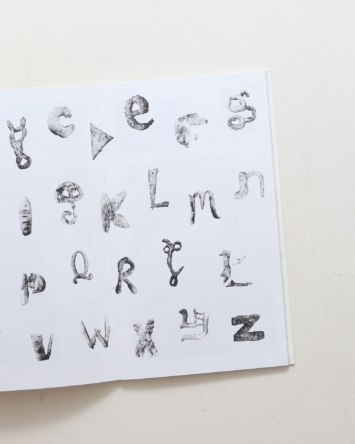 C D e F g
i j K L m n
p Q R S t
V W X y Z